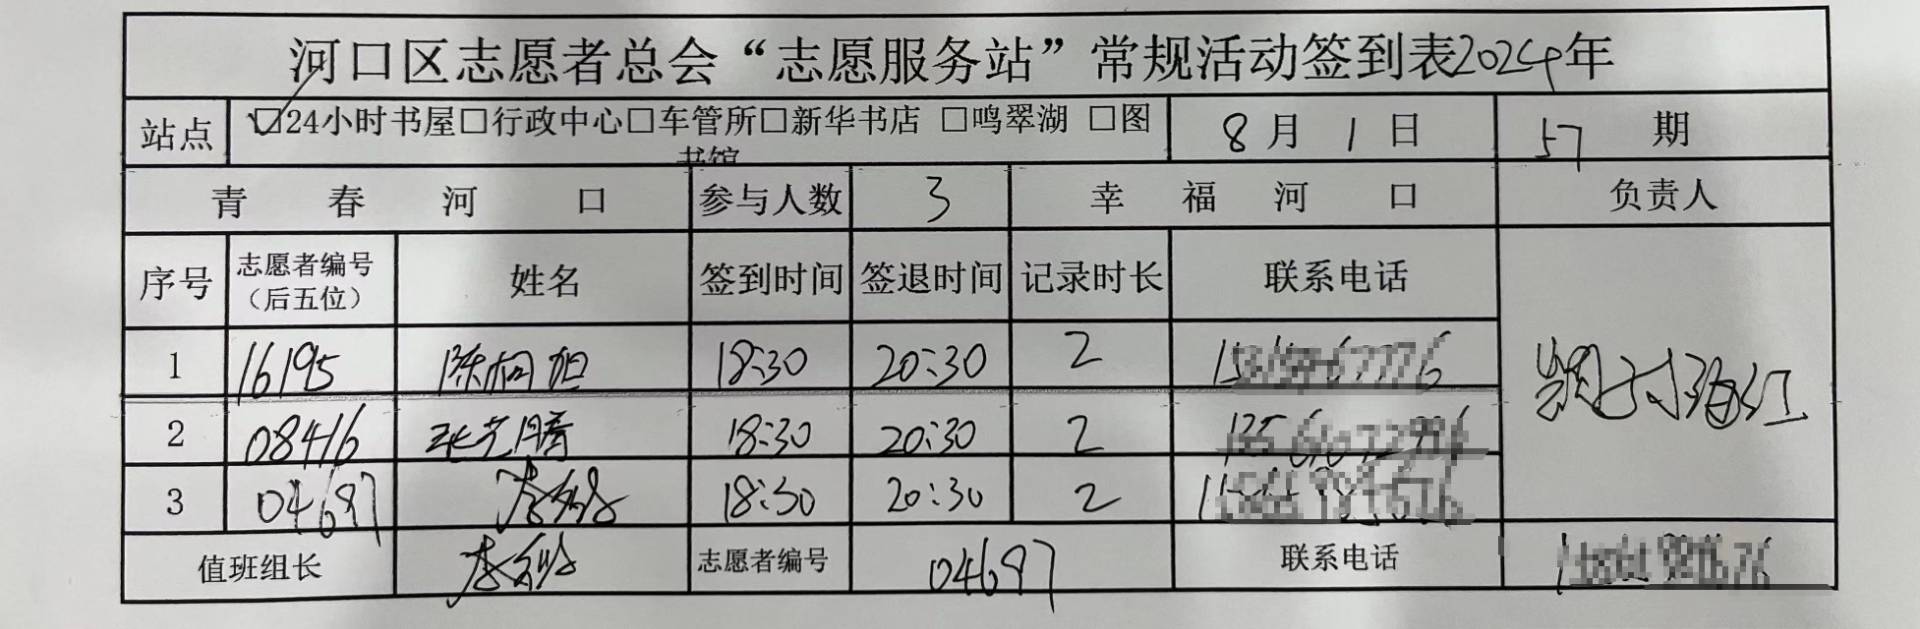 河口区志愿者总会“志愿服务站”常规活动签到表2024年
站点 ☑24小时书屋□行政中心□车管所□新华书店 □鸣翠湖 □图书馆 8月1日 57期
青春河口 参与人数 3 幸福河口 负责人
序号 志愿者编号(后五位) 姓名 签到时间 签退时间 记录时长 联系电话
1 16195 18:30 20:30 2
2 08416 18:30 20:30 2
3 04697 18:30 20:30 2
值班组长 志愿者编号 04697 联系电话